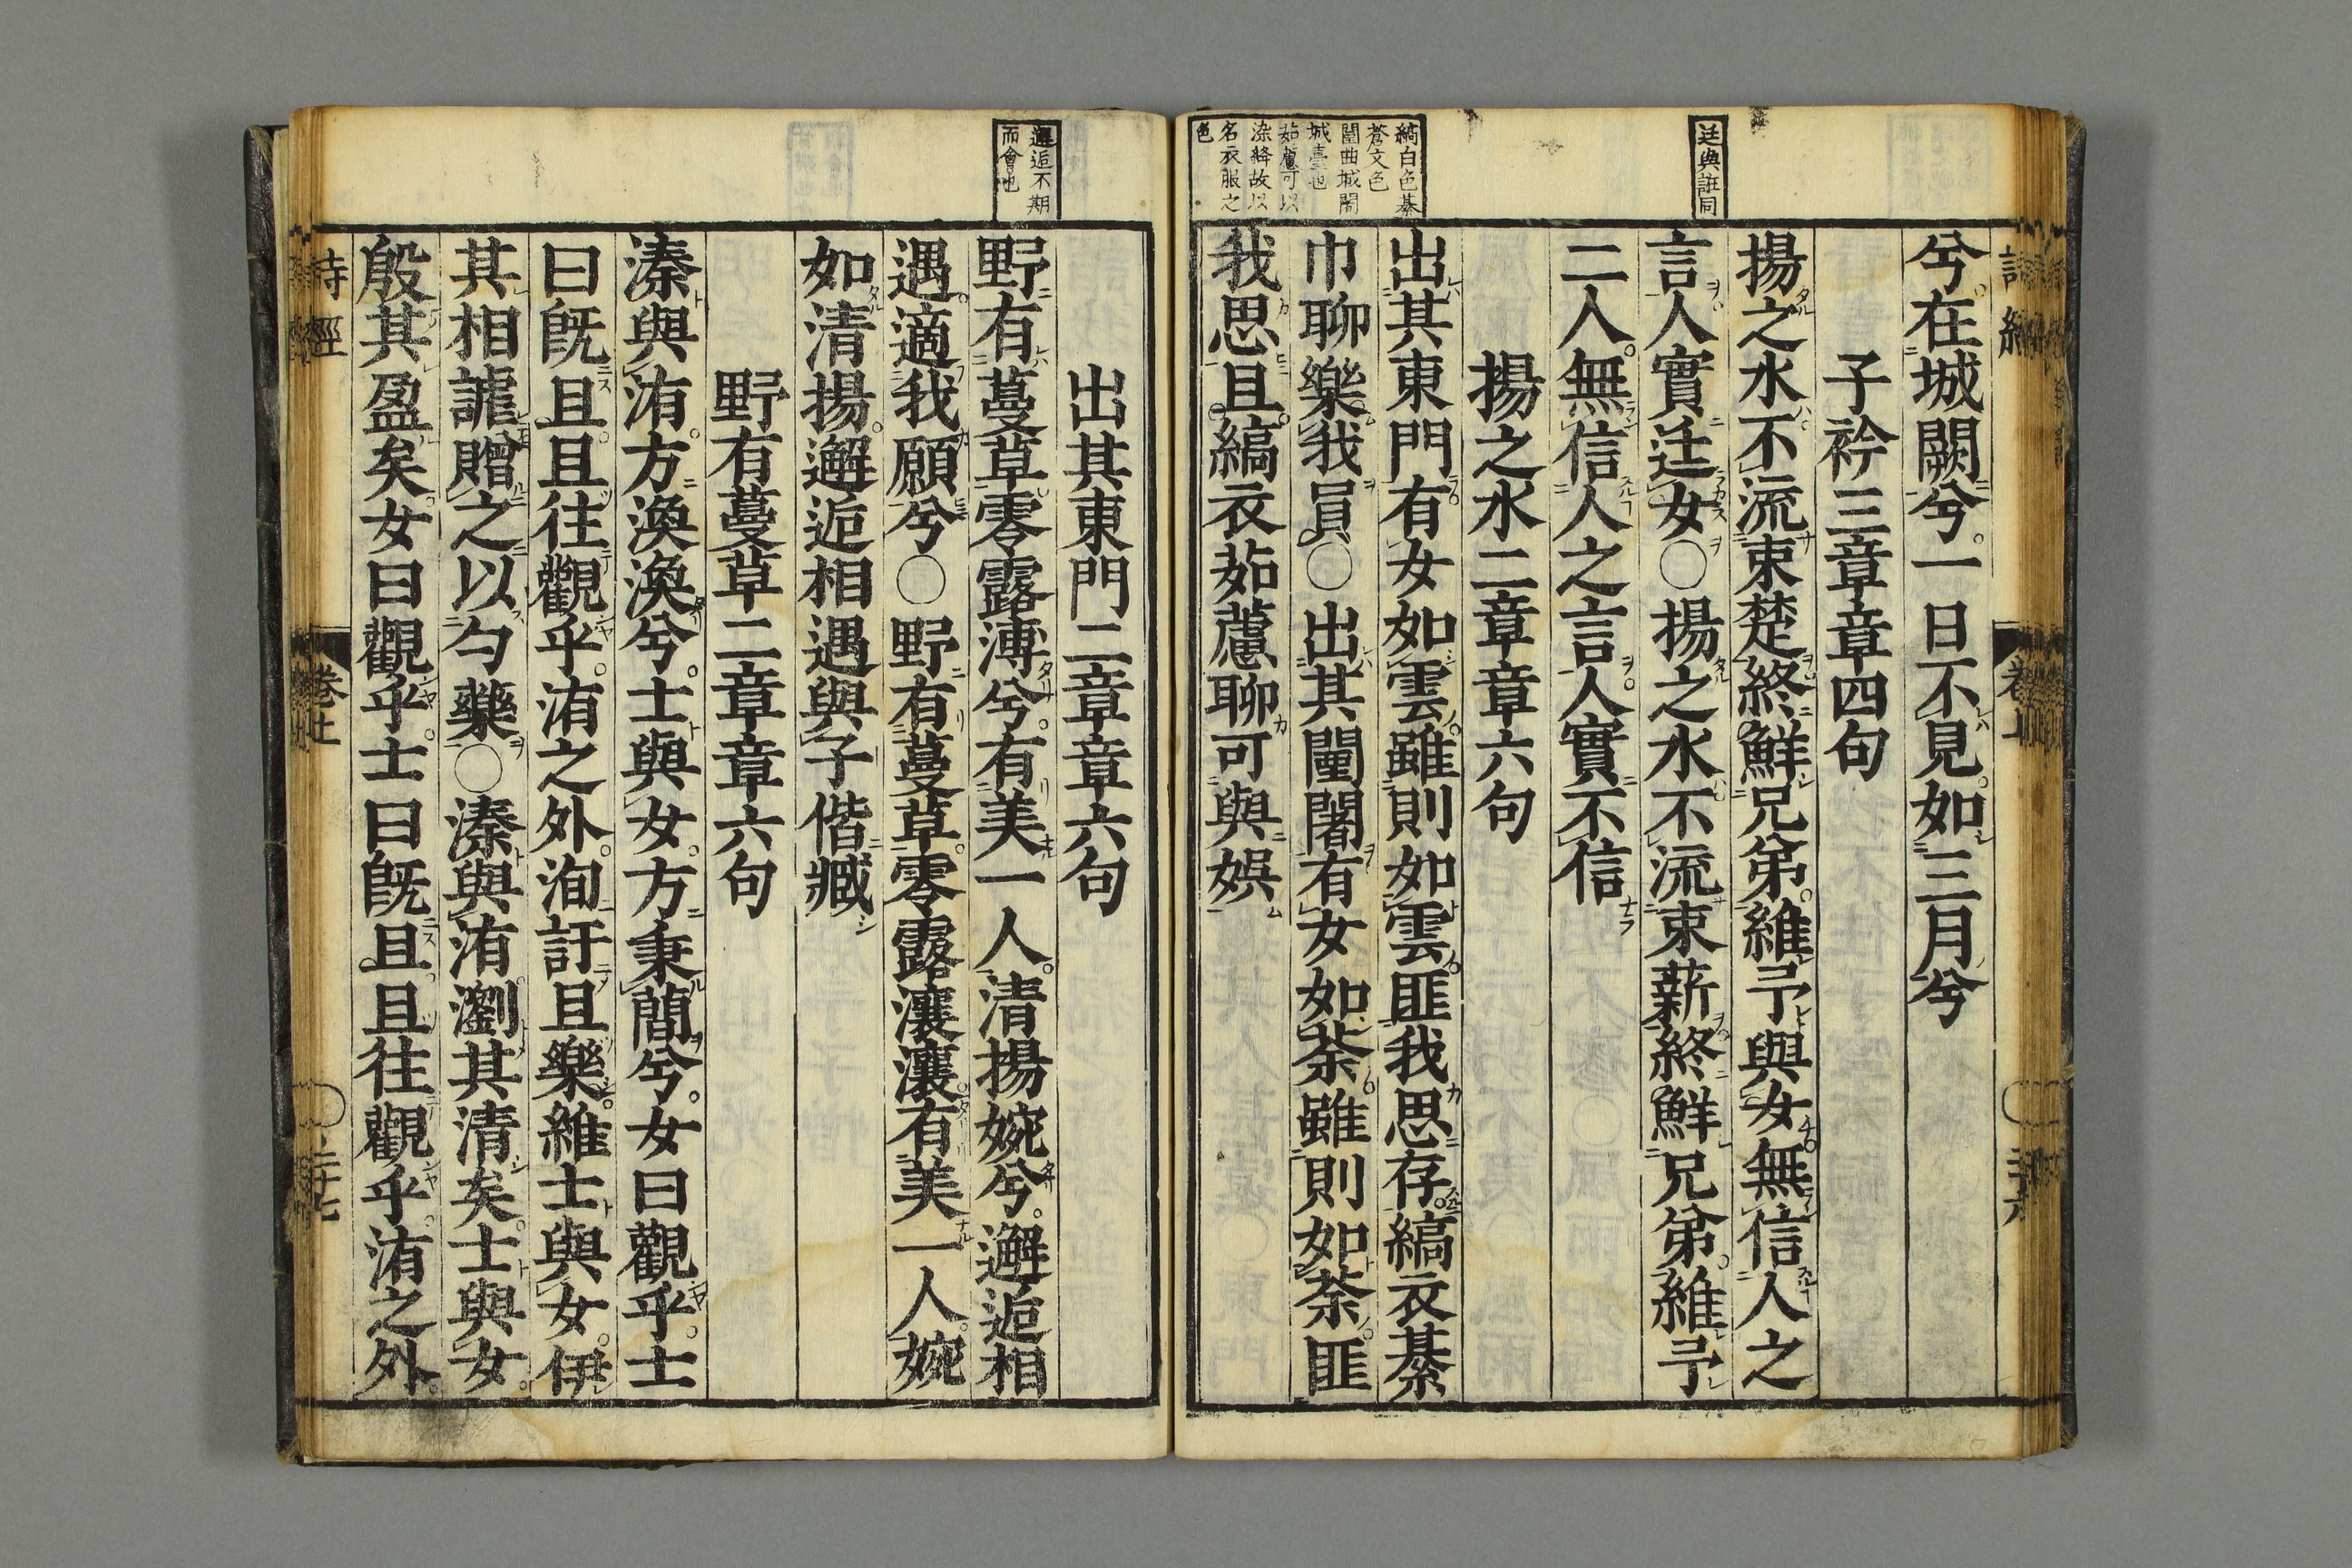 廷與誑同
縞白色綦
蒼文色
闉曲城闍
城臺也
茹藘可以
染絳故以
名衣服之
色
兮在城闕兮一日不見如三月兮
子衿三章章四句
揚之水不流束楚終鮮兄弟維予與女無信人之
言人實廷女○揚之水不流束薪終鮮兄弟維予
二人無信人之言人實不信
揚之水二章章六句
出其東門有女如雲雖則如雲匪我思存縞衣綦
巾聊樂我員○出其闉闍有女如荼雖則如荼匪
我思且縞衣茹藘聊可與娯
邂逅不期
而會也
出其東門二章章六句
野有蔓草零露漙兮有美一人清揚婉兮邂逅相
遇適我願兮○野有蔓草零露瀼瀼有美一人婉
如清揚邂逅相遇與子偕臧
野有蔓草二章章六句
溱與洧方渙渙兮士與女方秉蕑兮女曰觀乎士
曰既且且往觀乎洧之外洵訏且樂維士與女伊
其相謔贈之以勺藥○溱與洧瀏其清矣士與女
殷其盈矣女曰觀乎士曰既且且往觀乎洧之外
詩經
卷上
二十七